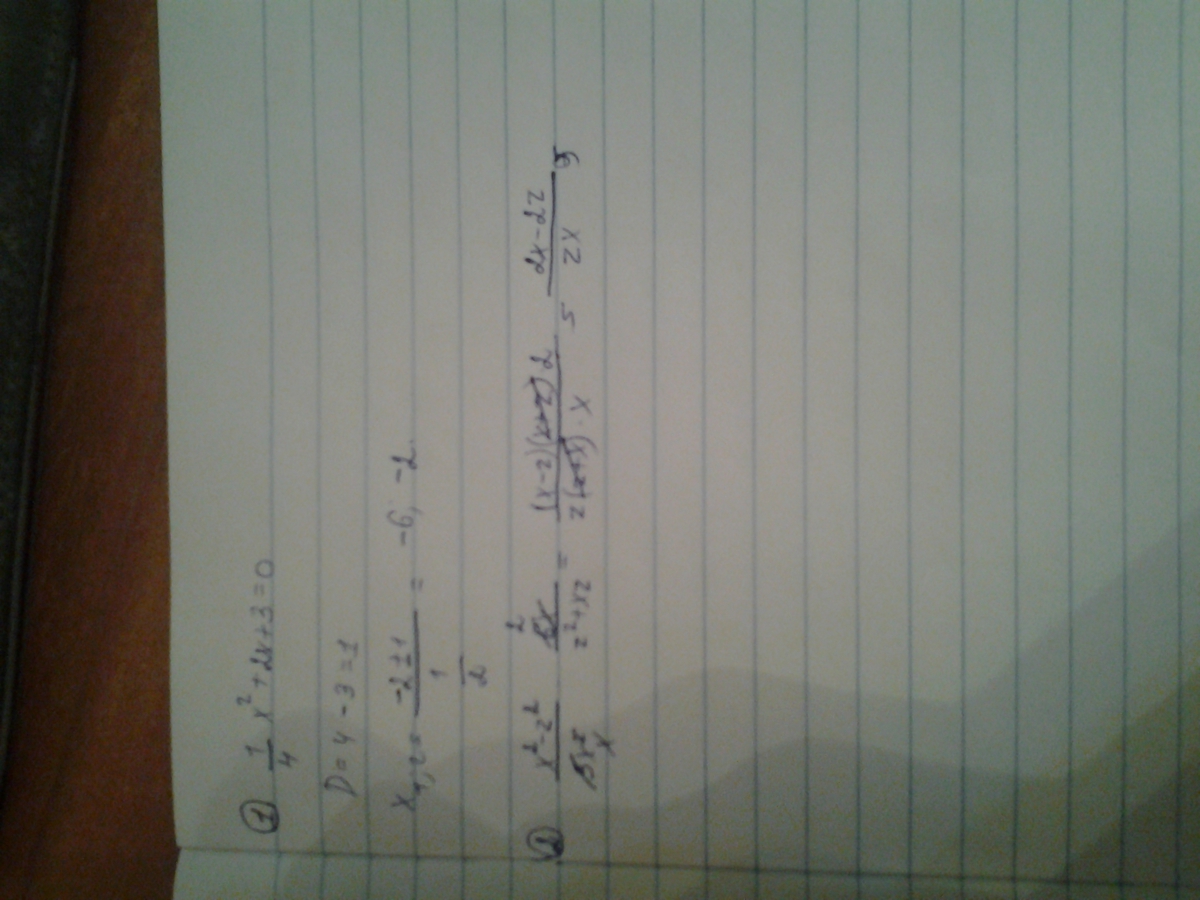 ① 1/4 x² + 2x + 3 = 0
D = 4 - 3 = 1
x₁,₂ = (-2 ± 1)/(1/2) = -6; -2
② (x² - z²)/x · 2/(z² + xz) = ((x - z)(x + z) 2)/(z(z + x) · x) = (2x - 2z)/(zx)